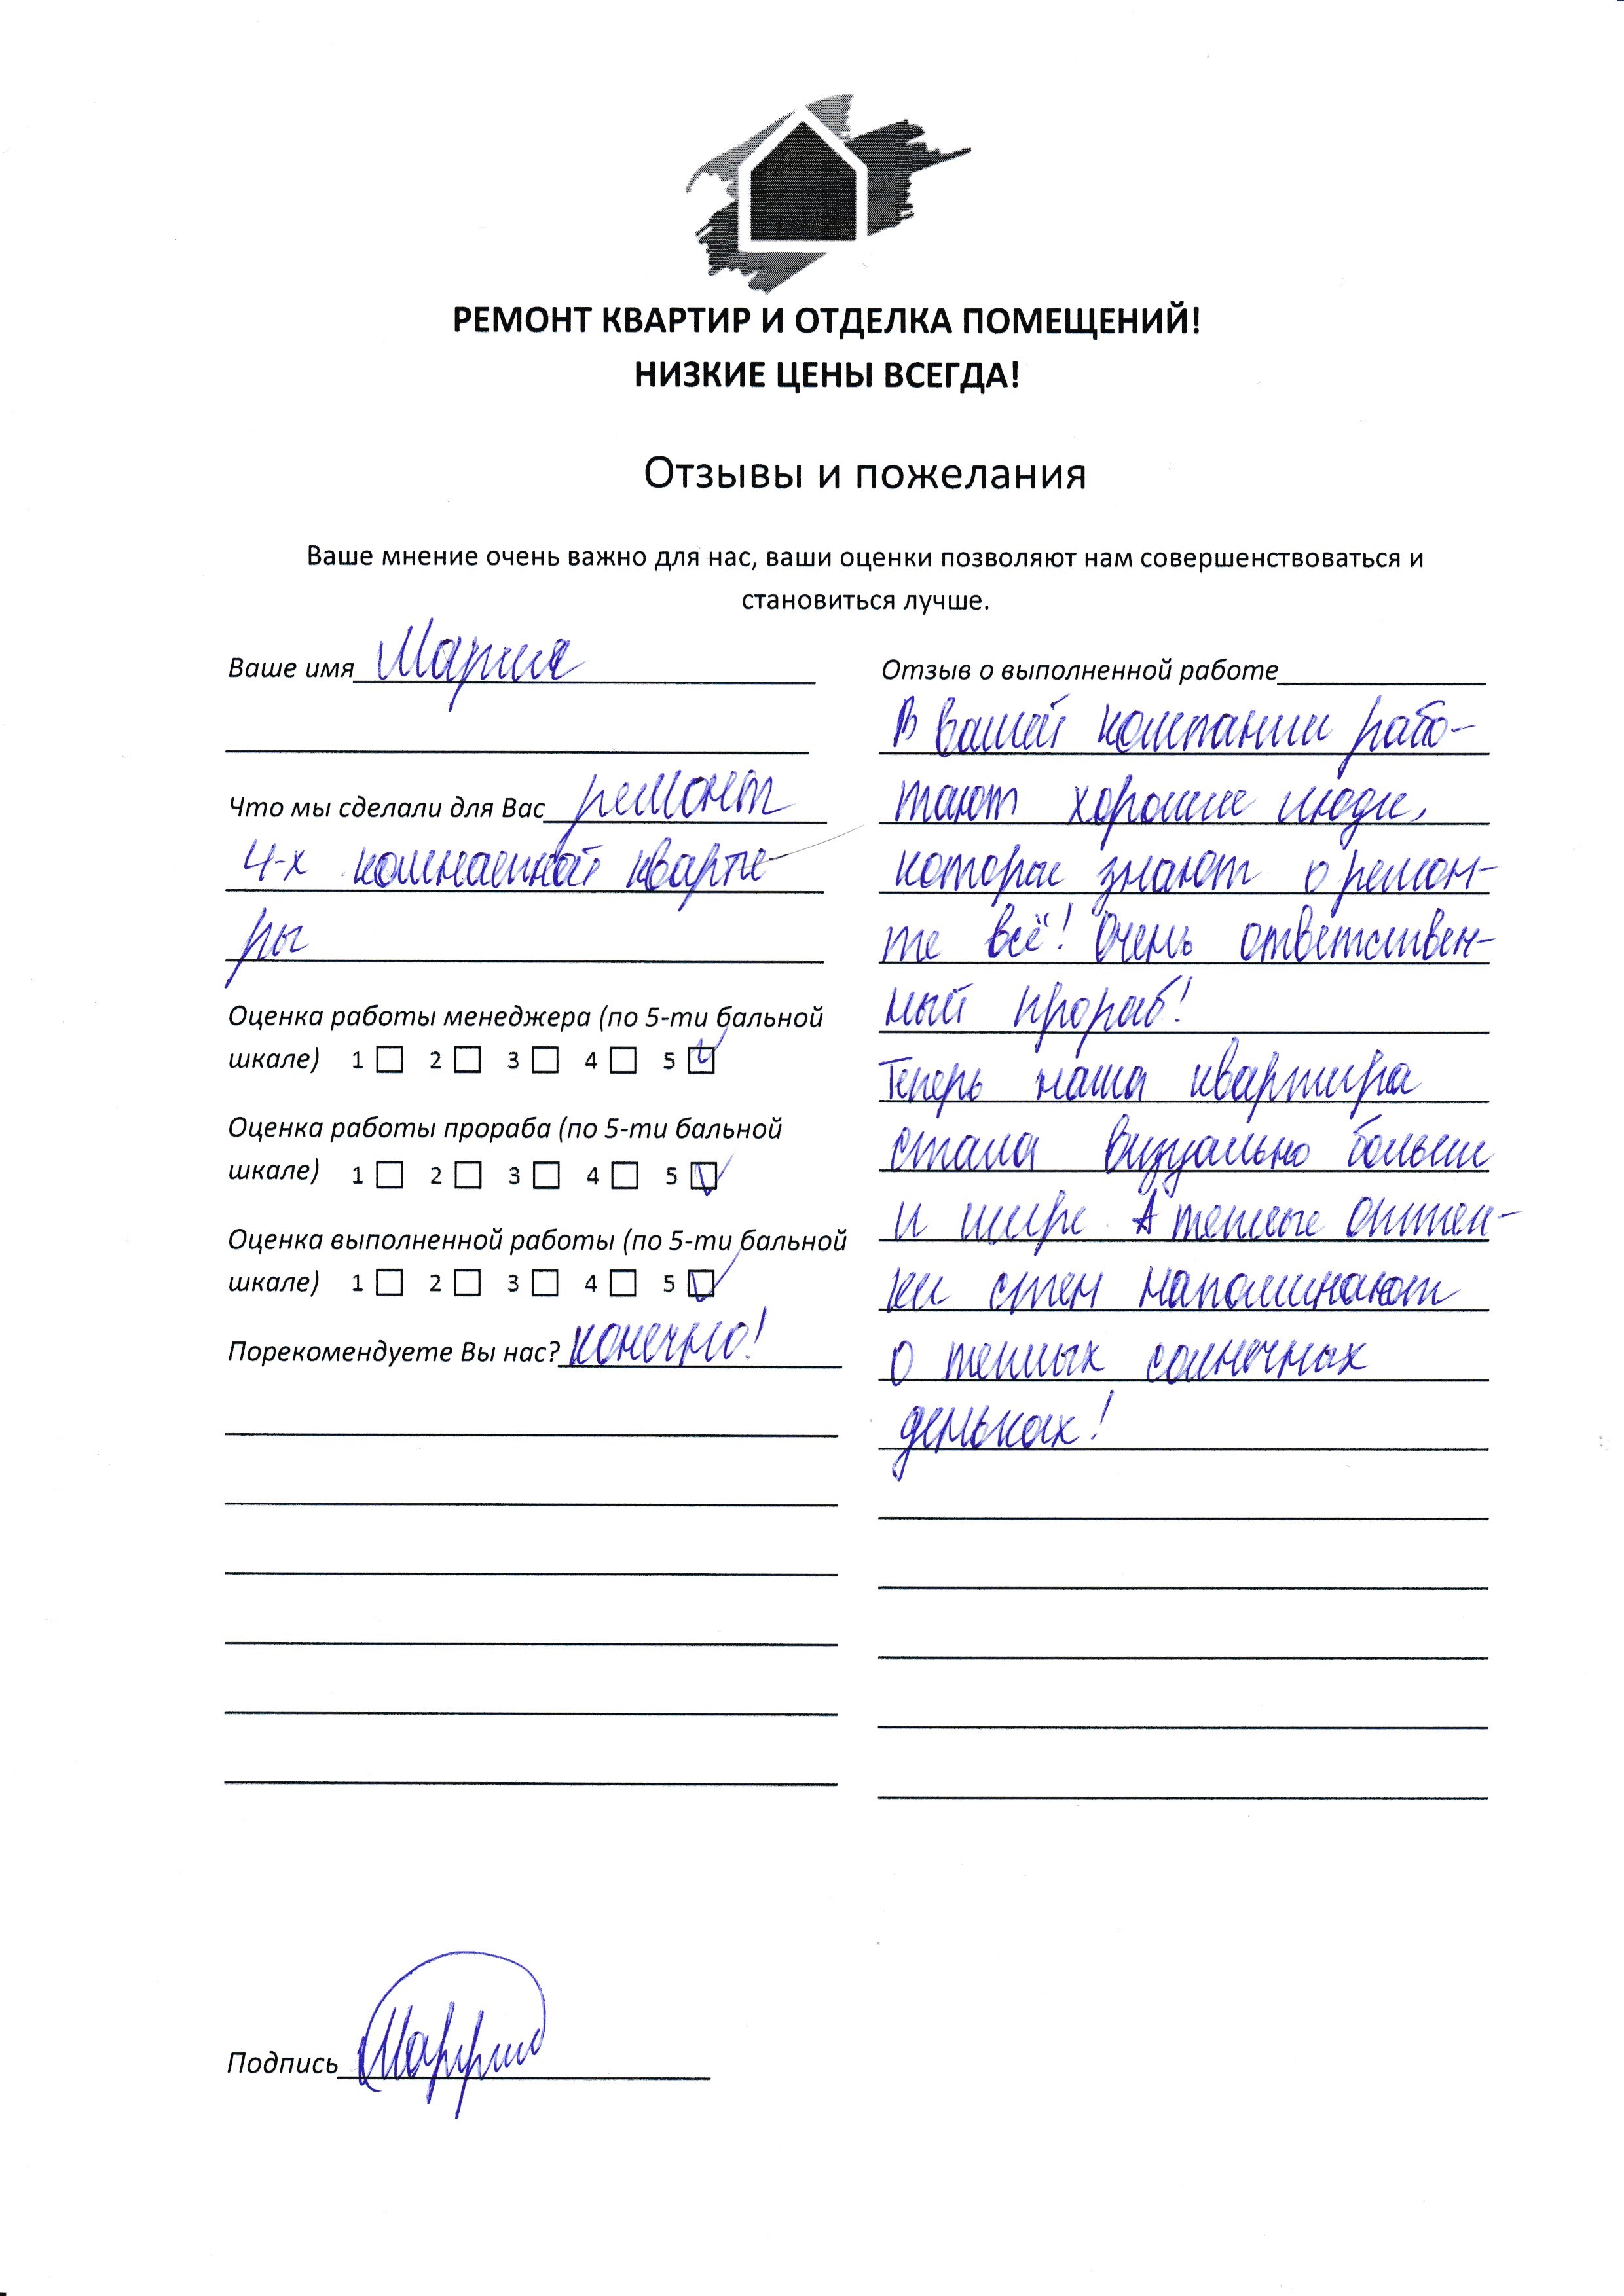 РЕМОНТ КВАРТИР И ОТДЕЛКА ПОМЕЩЕНИЙ!
НИЗКИЕ ЦЕНЫ ВСЕГДА!
Отзывы и пожелания
Ваше мнение очень важно для нас, ваши оценки позволяют нам совершенствоваться и
становиться лучше.
Ваше имя Мария
Что мы сделали для Вас ремонт
4-х комнатной кварти-
ры
Оценка работы менеджера (по 5-ти бальной
шкале) 1 2 3 4 5
Оценка работы прораба (по 5-ти бальной
шкале) 1 2 3 4 5
Оценка выполненной работы (по 5-ти бальной
шкале) 1 2 3 4 5
Порекомендуете Вы нас? конечно!
Отзыв о выполненной работе
В вашей компании рабо-
тают хорошие люди,
которые знают о ремон-
те всё! Очень ответствен-
ный прораб!
Теперь наша квартира
стала визуально больше
и шире. А теплые оттен-
ки стен напоминают
о теплых солнечных
деньках!
Подпись